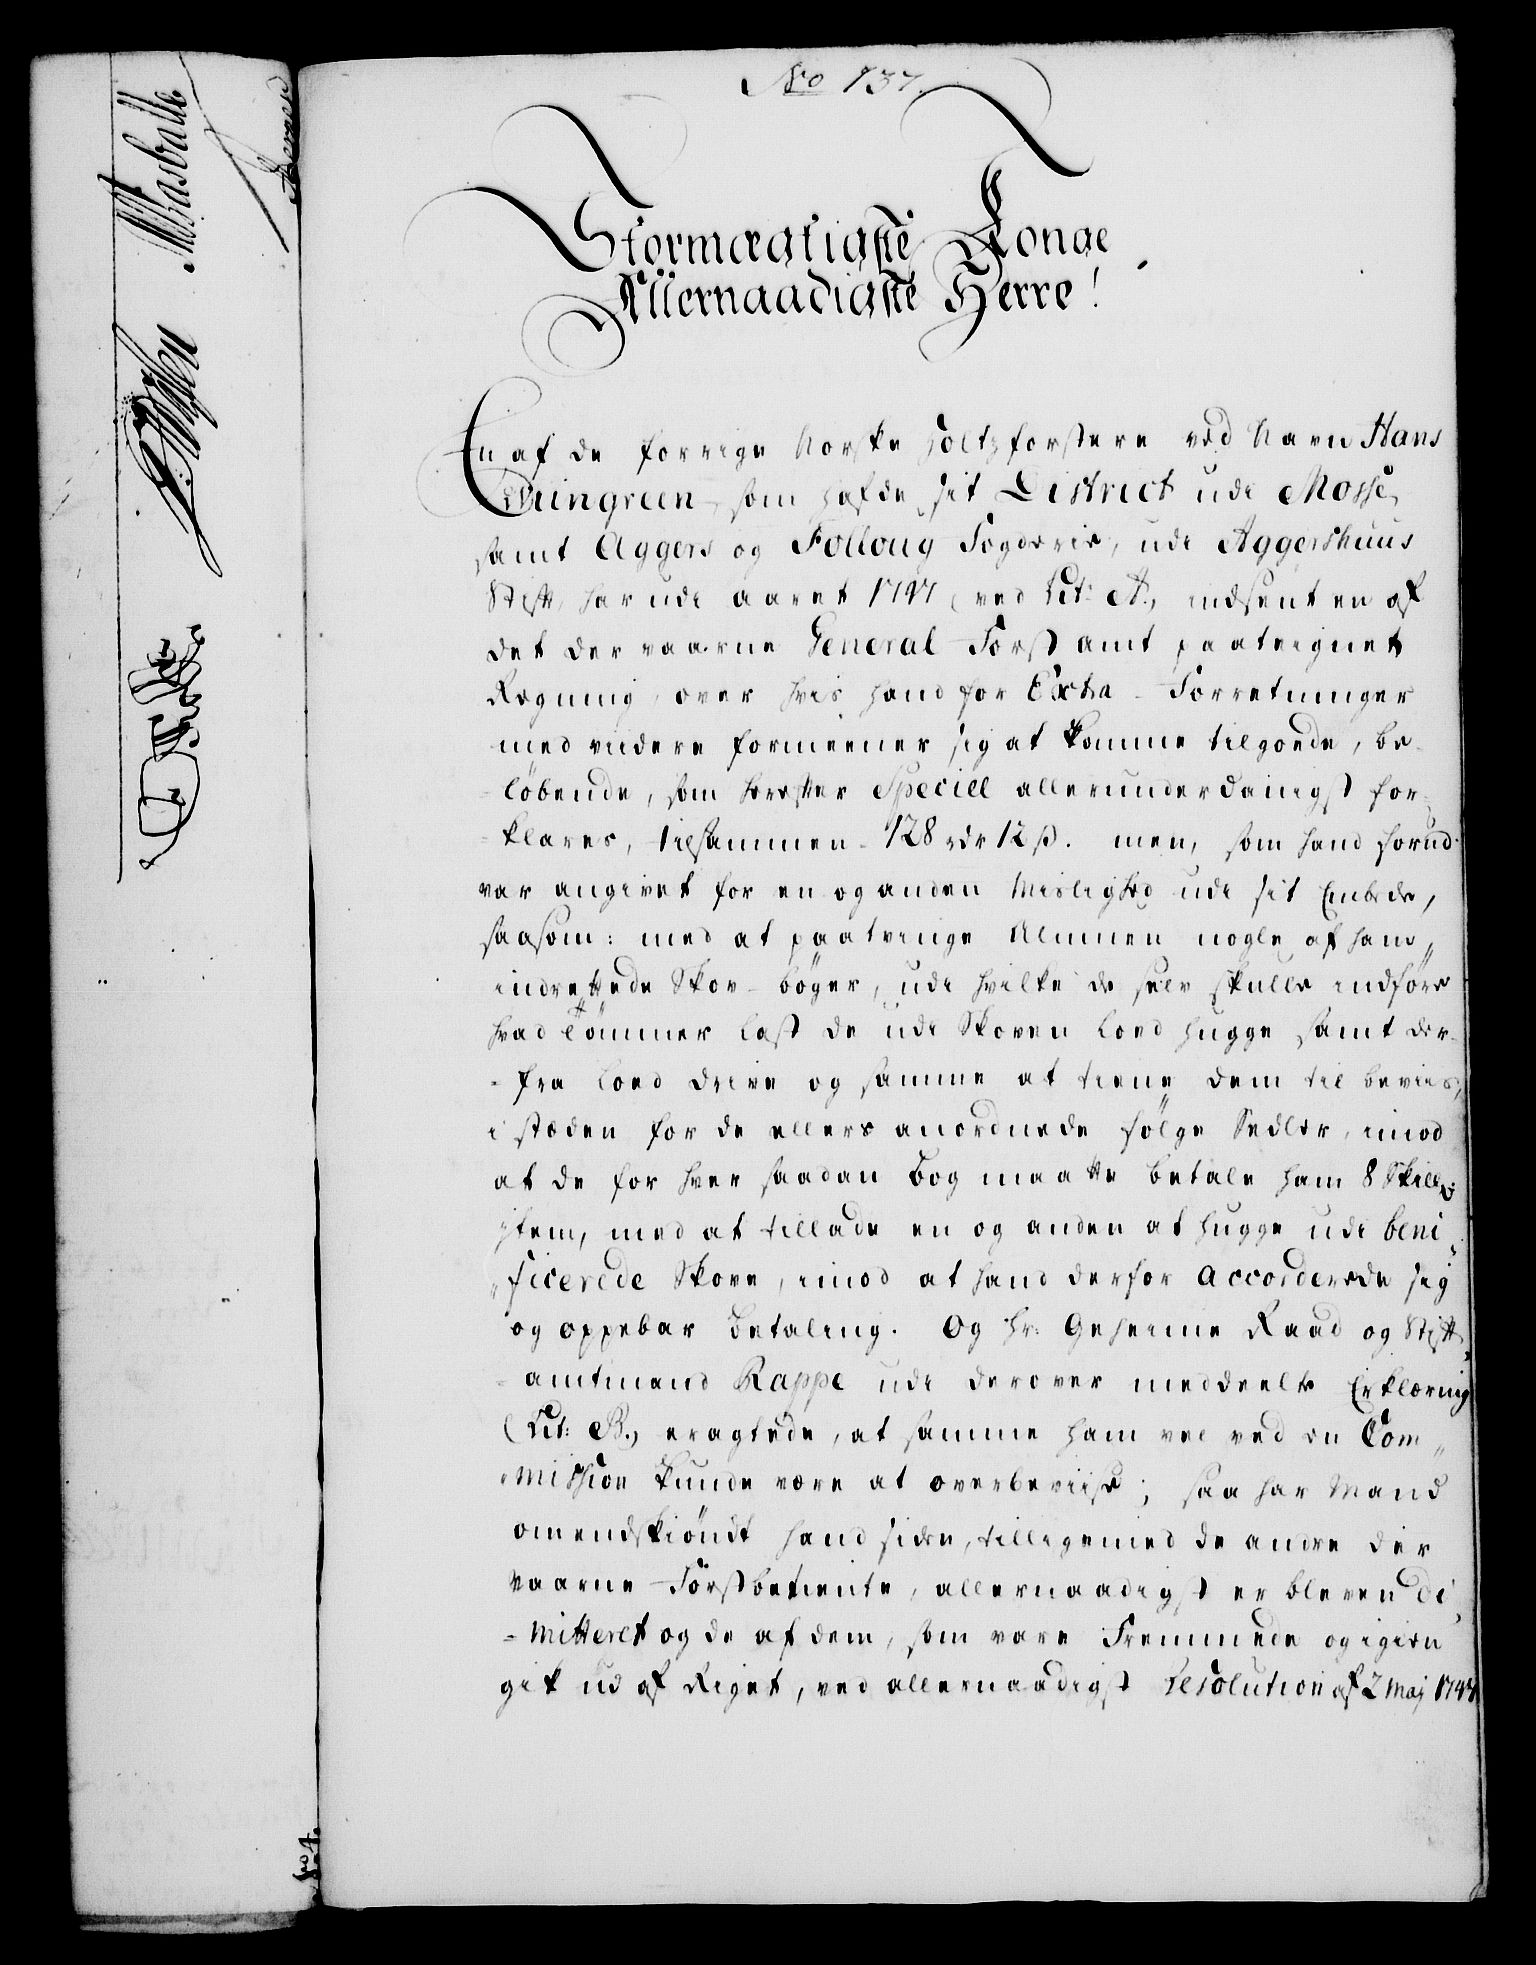 No 137.
Stormægtigste Konge
Allernaadigste Herre!
En af de forrige Norske Holtzforstere ved Navn Hans
som hafde sit District udi Mosse,
samt Aggers og Folloug Fogderie, udi Aggershuus
Stift, har udi aaret 1747 (ved Lit: A., indsent en af
det der vaarne General-Forst amt paateignet
Regning, over hvis hand for Extra-Forretninger
med viidere formeener sig at komme tilgoede, be-
løbende, som herefter Speciell allerunderdanigst for-
klares, tilsammen 128 rdr 12 ß. men, som hand forud
var angivet for en og anden Mislighed udi sit Embede,
saasom: med at paatvinge Almuen nogle af ham
indrettede Skov-bøger, udi hvilke de selv skulle indføre
hvad Tømmer last de udi Skoven loed hugge samt der-
-fra loed drive og samme at tiene dem til beviis,
i stæden for de ellers anordnede følge Sedler, imod
at de for hver saadan bog maatte betale ham 8 Skill:
Item, med at tillade en og anden at hugge udi beni-
ficerede Skove, imod at hand derfor accorderede sig
og oppebar betaling. Og Hr: Geheime Raad og Stift-
amtmand Rappe udi derover meddeelte Erklæring
(Lit: B., eragtede, at samme ham vel ved en Com-
mission kunde være at overbeviise; saa har Mand
omendskiøndt hand siden, tilligemed de andre der
vaarne Forstbetiente, allernaadigst er bleven di-
-mitteret og de af dem, som vare Fremmede og igien
gik ud af Riget, ved allernaadigst Resolution af 2 Maj